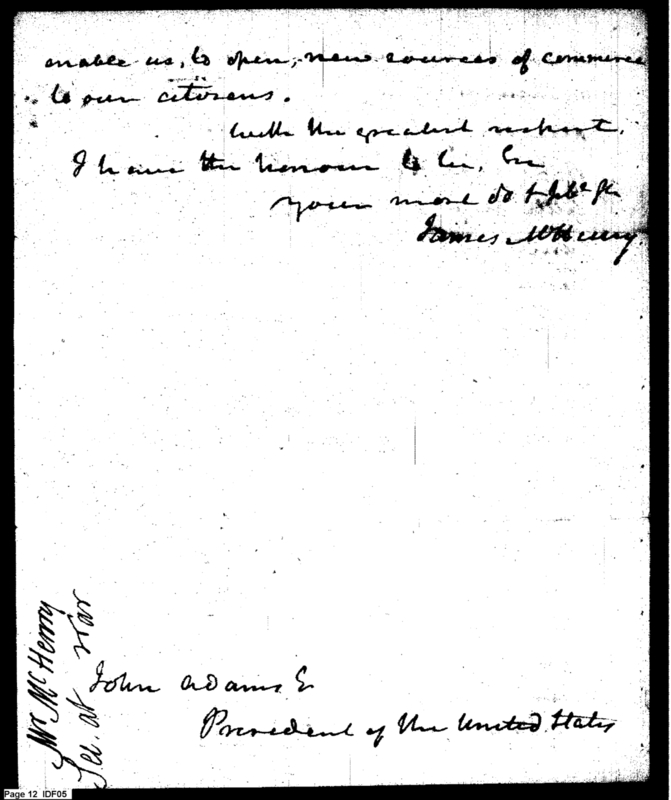 enable us, to open, new sources of commerce
to our citizens.
with the greatest respect.
I have the honour to be, Sir
your most
James McHenry
John Adams E
President of the United States
Mr McHenry
Sec. at War
Page 12 IDF05